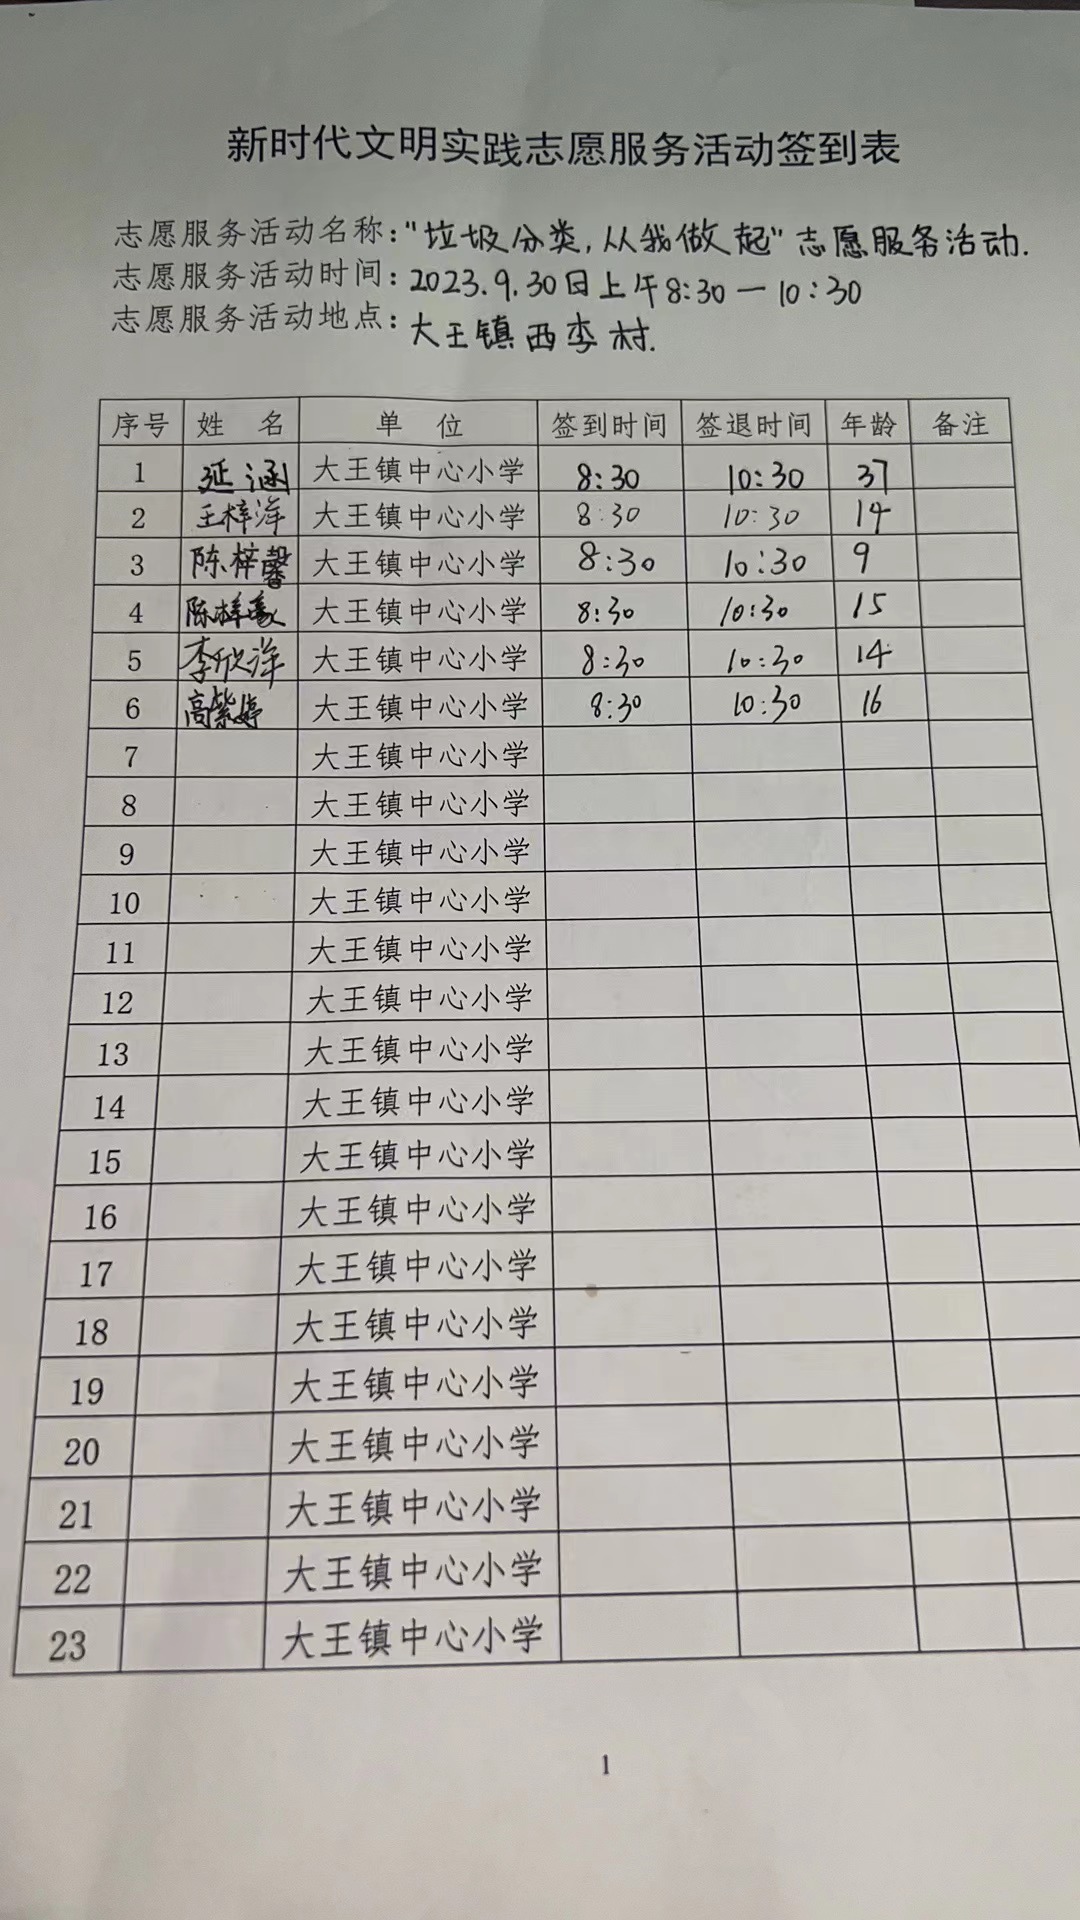 新时代文明实践志愿服务活动签到表
志愿服务活动名称："垃圾分类,从我做起"志愿服务活动.
志愿服务活动时间：2023.9.30日上午8:30—10:30
志愿服务活动地点：大王镇西李村.
序号 姓 名 单 位 签到时间 签退时间 年龄 备注
1 延涵 大王镇中心小学 8:30 10:30 37
2 王梓洋 大王镇中心小学 8:30 10:30 14
3 陈梓馨 大王镇中心小学 8:30 10:30 9
4 陈梓豪 大王镇中心小学 8:30 10:30 15
5 李欣洋 大王镇中心小学 8:30 10:30 14
6 高紫婷 大王镇中心小学 8:30 10:30 16
7 大王镇中心小学
8 大王镇中心小学
9 大王镇中心小学
10 大王镇中心小学
11 大王镇中心小学
12 大王镇中心小学
13 大王镇中心小学
14 大王镇中心小学
15 大王镇中心小学
16 大王镇中心小学
17 大王镇中心小学
18 大王镇中心小学
19 大王镇中心小学
20 大王镇中心小学
21 大王镇中心小学
22 大王镇中心小学
23 大王镇中心小学
1